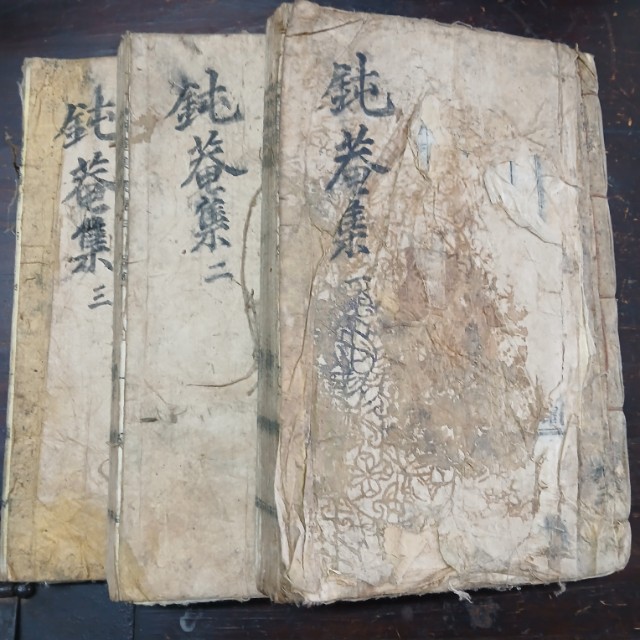 鈍菴集
鈍菴集二
鈍菴集三